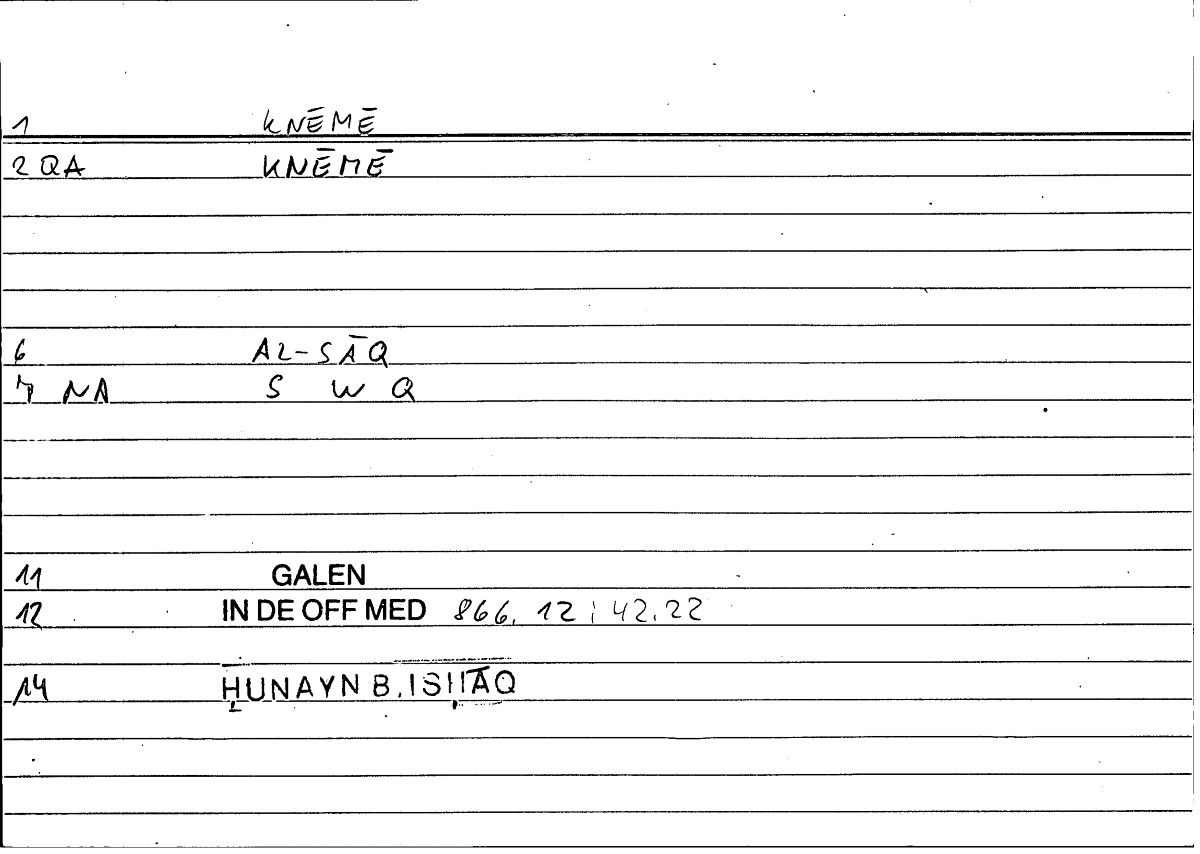 1 KNĒMĒ
2 QA KNĒMĒ
6 AL-SĀQ
7 NA S W Q
11 GALEN
12 IN DE OFF MED 866, 12 ; 42.22
14 ḤUNAYN B. ISḤĀQ